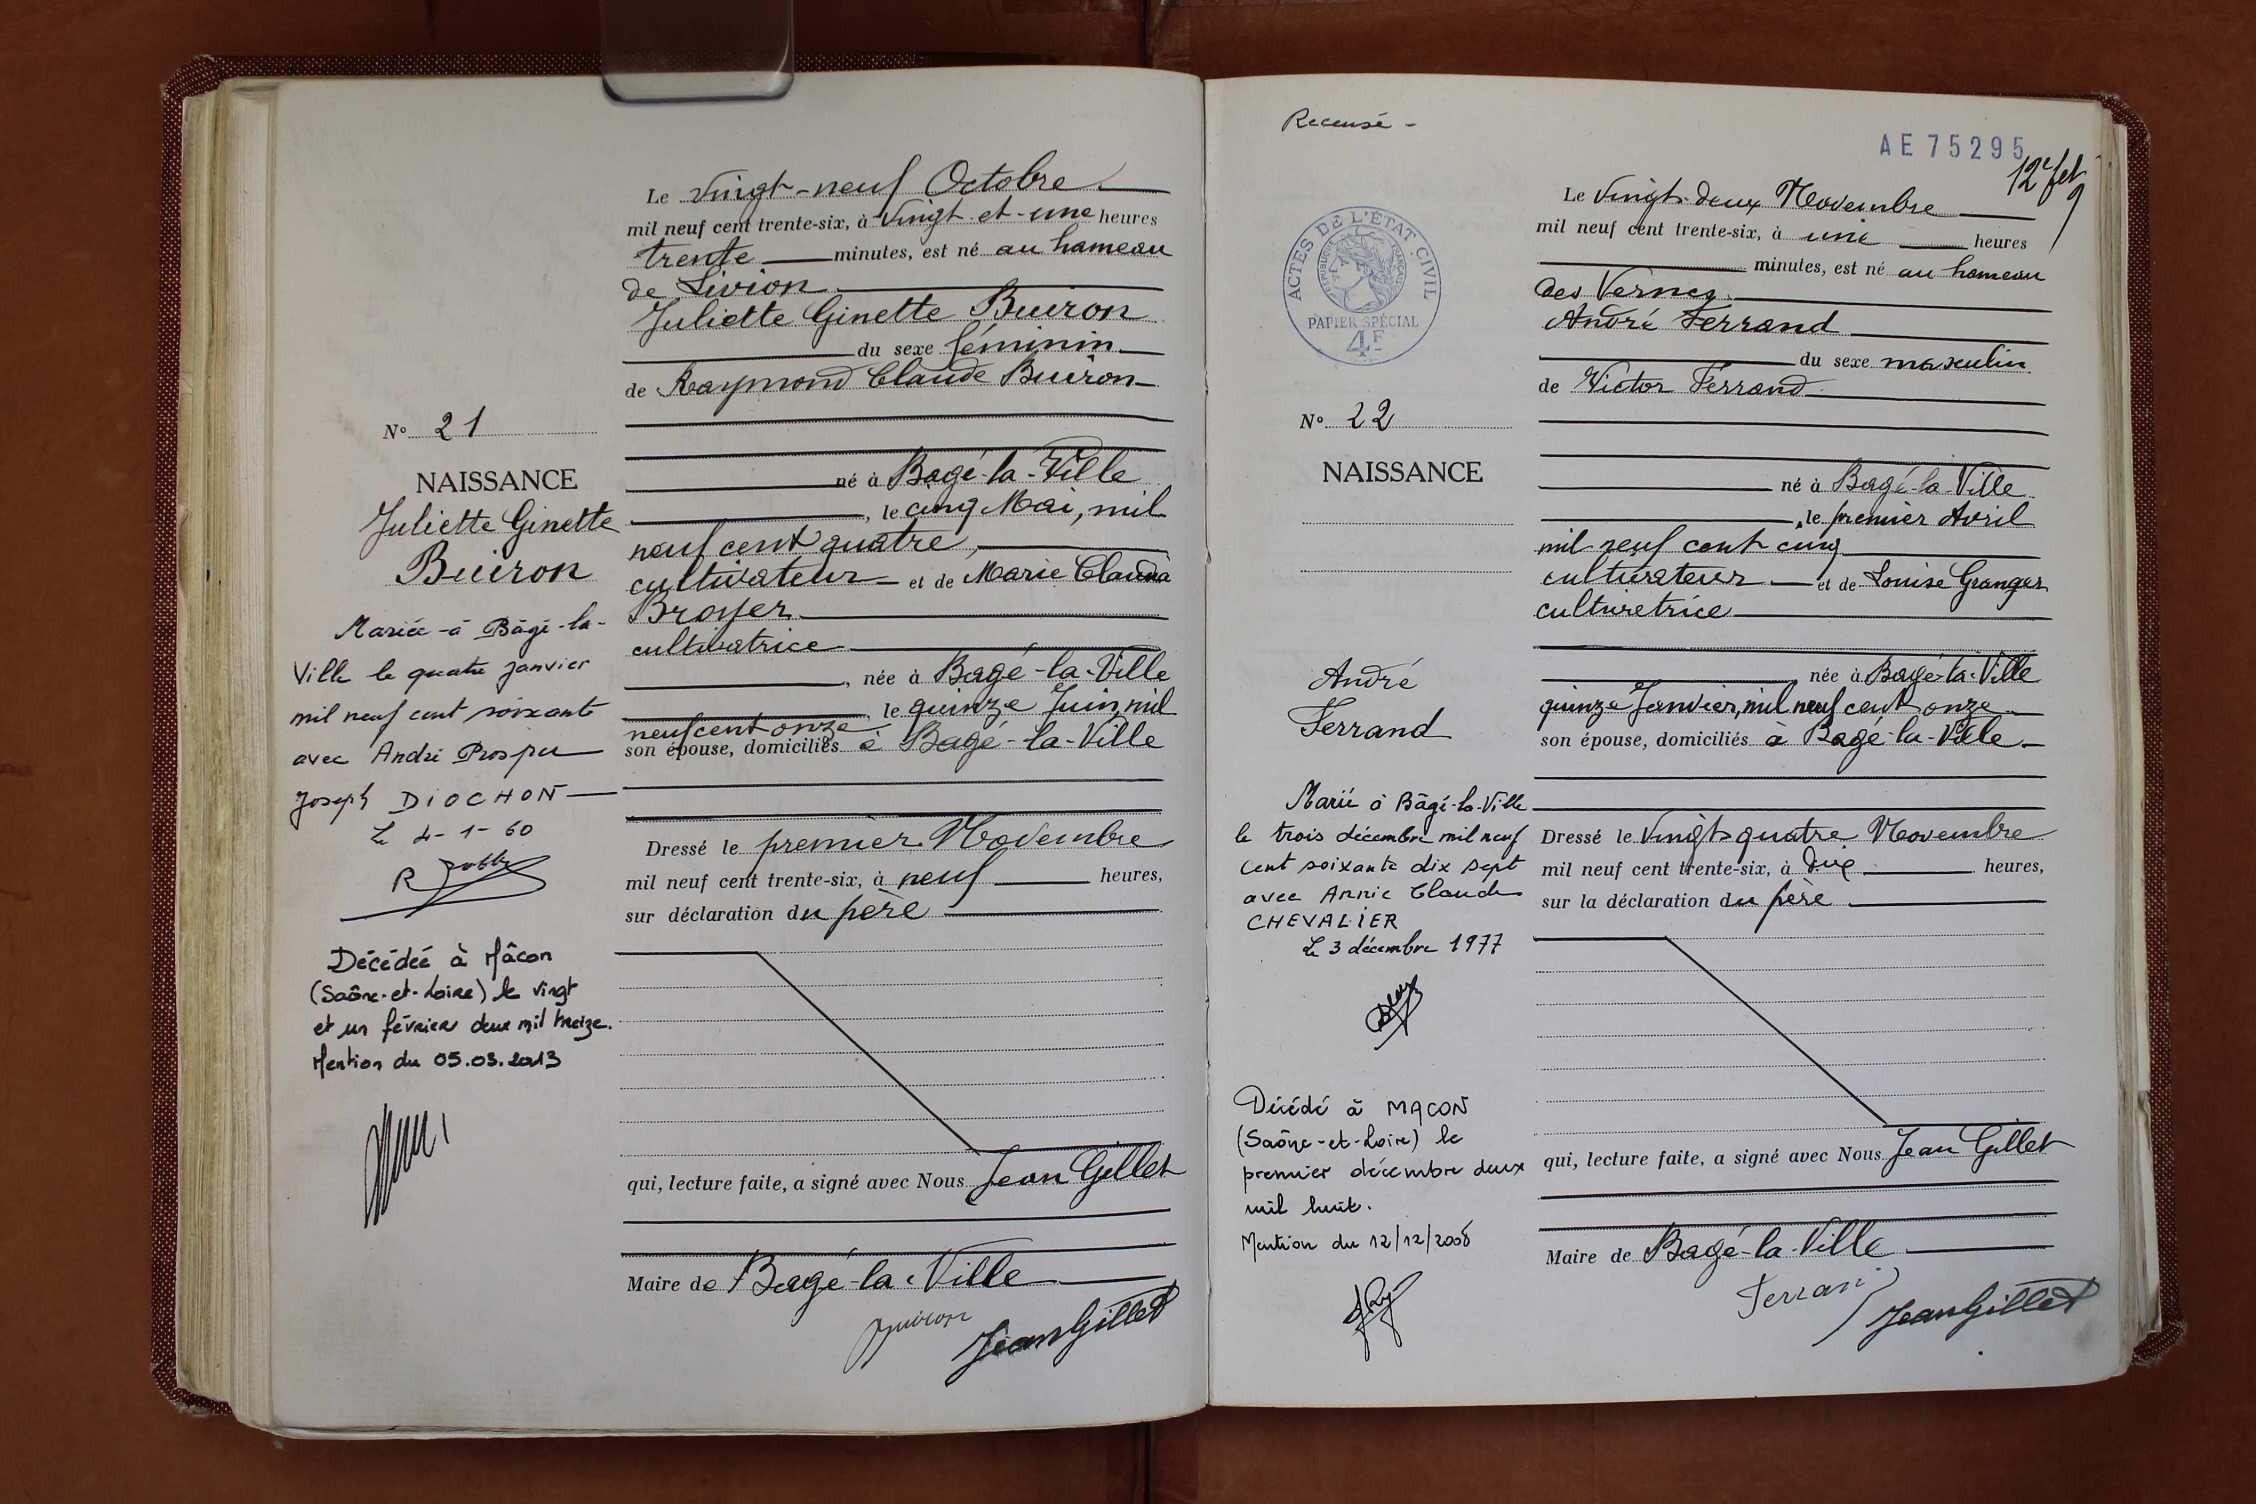 Le vingt-neuf Octobre
mil neuf cent trente-six, à vingt-et-une heures
trente minutes, est né au hameau
de Livion
Juliette Ginette Buiron
du sexe féminin
de Raymond Claude Buiron
né à Bagé-la-Ville
, le cinq Mai, mil
neuf cent quatre,
cultivateur et de Marie Claudia
Broyer
cultivatrice
, née à Bagé-la-Ville
, le quinze Juin, mil
neuf cent onze
son épouse, domiciliés à Bagé-la-Ville
Dressé le premier Novembre
mil neuf cent trente-six, à neuf heures,
sur déclaration du père
qui, lecture faite, a signé avec Nous Jean Gillet
Maire de Bagé-la-Ville
Buiron
Jean Gillet
N° 21
NAISSANCE
Juliette Ginette
Buiron
Mariée à Bâgé-la-
Ville le quatre janvier
mil neuf cent soixante
avec André Prosper
Joseph DIOCHON
Le 4-1-60
R
Décédée à Mâcon
(Saône-et-Loire) le vingt
et un février deux mil treize.
Mention du 05.03.2013
Recensé -
AE 75295
12e fet
ACTES DE L'ÉTAT CIVIL
PAPIER SPÉCIAL
4F
Le vingt-deux Novembre
mil neuf cent trente-six, à une heures
minutes, est né au hameau
des Vernes
André Ferrand
du sexe masculin
de Victor Ferrand
né à Bagé-la-Ville
, le premier Avril
mil neuf cent cinq
cultivateur et de Louise Granger
cultivatrice
née à Bagé-la-Ville
quinze Janvier, mil neuf cent onze
son épouse, domiciliés à Bagé-la-Ville
Dressé le vingt-quatre Novembre
mil neuf cent trente-six, à dix heures,
sur la déclaration du père
qui, lecture faite, a signé avec Nous Jean Gillet
Maire de Bagé-la-Ville
Ferrand
Jean Gillet
N° 22
NAISSANCE
André
Ferrand
Marié à Bâgé-la-Ville
le trois décembre mil neuf
cent soixante dix sept
avec Annie Claude
CHEVALIER
Le 3 décembre 1977
Décédé à MACON
(Saône-et-Loire) le
premier décembre deux
mil huit.
Mention du 12/12/2008